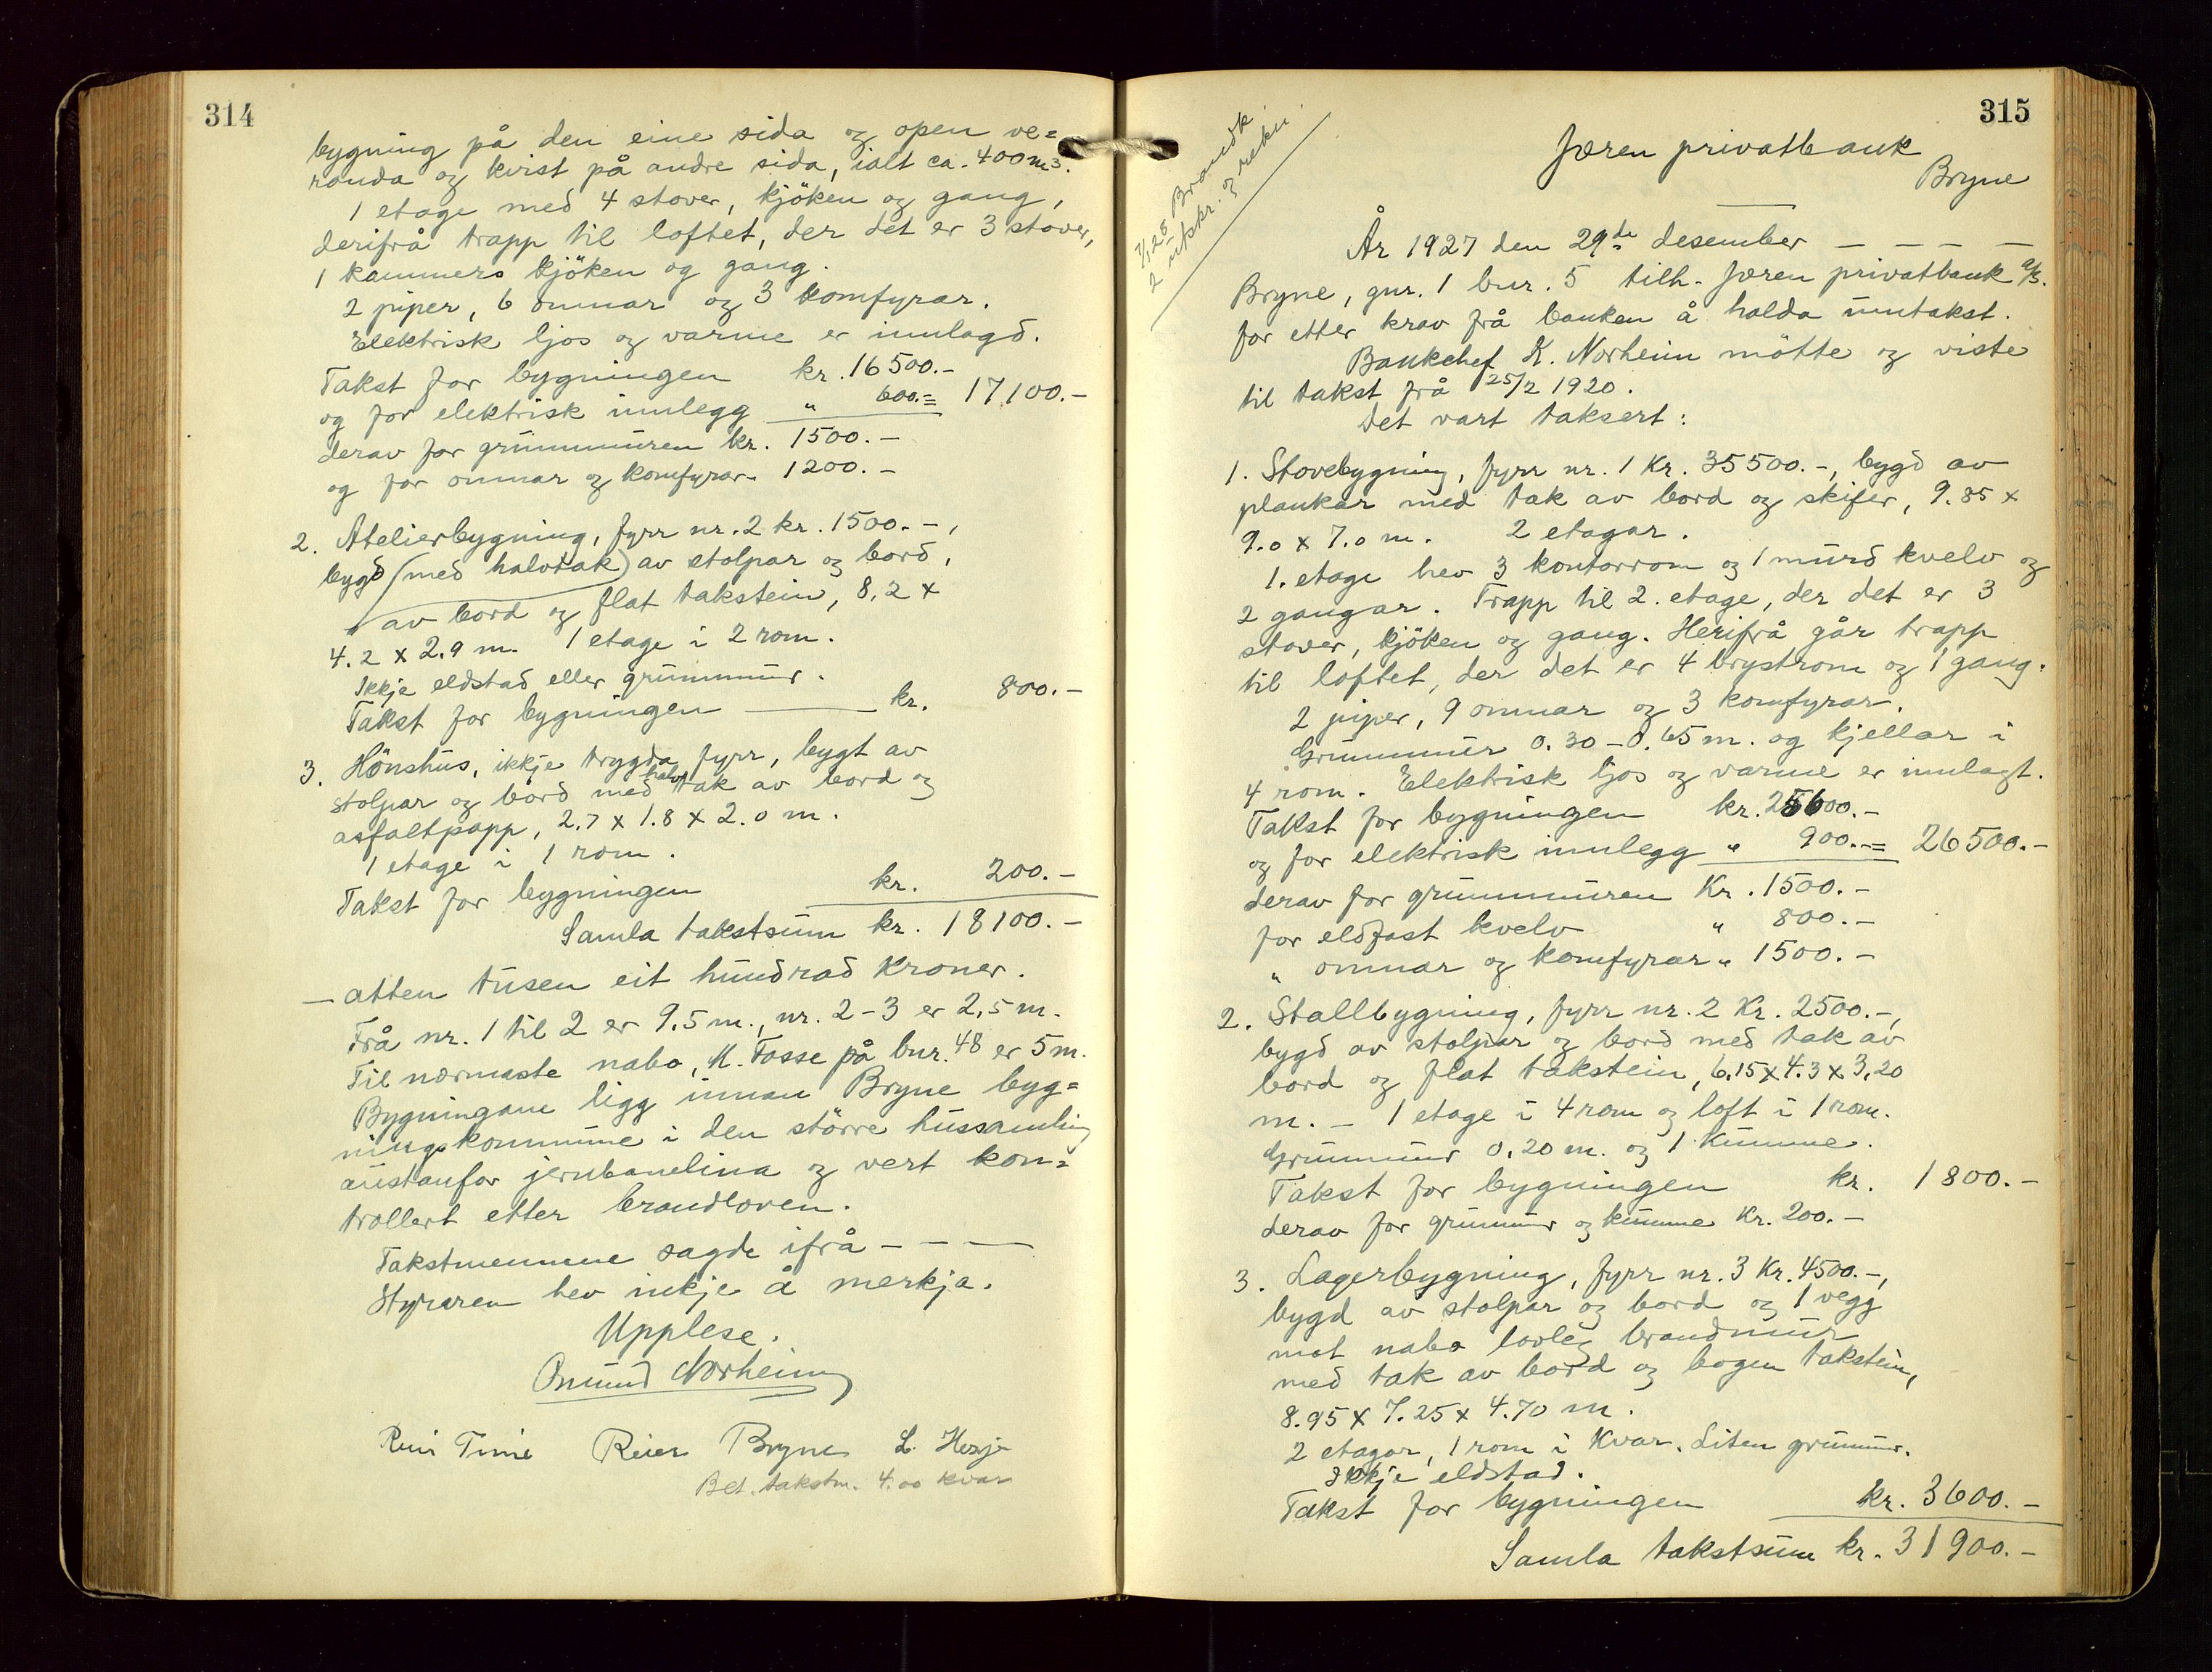 314
bygning på den eine sida og open ve=
randa og kvist på andre sida, ialt ca. 400 m³.
1 etage med 4 stover, kjöken og gang,
derifrå trapp til loftet, der det er 3 stover,
1 kammers kjöken og gang.
2 piper, 6 omnar og 3 komfyrar.
Elektrisk ljos og varme er innlagd.
Takst for bygningen kr. 16500.-
og for elektrisk innlegg " 600.= 17100.-
derav for grunnmuren kr. 1500.-
og for omnar og komfyrar. 1200.-
2. Atelierbygning, fyrr nr. 2 kr. 1500.-,
bygd (med halvtak) av stolpar og bord,
av bord og flat takstein, 8,2 x
4.2 x 2.9 m. 1 etage i 2 rom.
Ikkje eldstad eller grunnmur.
Takst for bygningen kr. 800.-
3. Hönshus, ikkje trygda fyrr, bygt av
stolpar og bord med halvtak av bord og
asfaltpapp, 2.7 x 1.8 x 2.0 m.
1 etage i 1 rom.
Takst for bygningen kr. 200.-
Samla takstsum kr. 18100.-
- atten tusen eit hundrad kroner.
Frå nr. 1 til 2 er 9.5 m., nr. 2-3 er 2,5 m.
Til nærmaste nabo, M. Fosse på bnr. 48 er 5 m.
Bygningane ligg innan Bryne byg=
ningskommune i den större hussamling
austanfor jernbanelina og vert kon=
trollert etter brandloven.
Takstmennene sagde ifrå - - -
Styraren hev inkje å merkja.
Upplese.
Osmund Norheim
Reier Time Reier Bryne L. Herje
Bet. takstm. 4.00 kvar
315
7/1 28 Brandk.
2 utskr. og rekn
Jæren privatbank
Bryne
År 1927 den 29de desember - - - -
Bryne, gnr. 1 bnr. 5 tilh. Jæren privatbank a/s.
for etter krav frå banken å halda umtakst.
Bankchef K. Norheim mötte og viste
til takst frå 25/2 1920.
Det vart taksert:
1. Stovebygning, fyrr nr. 1 Kr. 35500.-, bygd av
plankar med tak av bord og skifer, 9.85 x
9.0 x 7.0 m. 2 etagar.
1. etage hev 3 kontorrom og 1 murd kvelv og
2 gangar. Trapp til 2. etage, der det er 3
stover, kjöken og gang. Herifrå går trapp
til loftet, der det er 4 brystrom og 1 gang.
2 piper, 9 omnar og 3 komfyrar.
Grunnmur 0.30-0.65 m. og kjellar i
4 rom. Elektrisk ljos og varme er innlagt.
Takst for bygningen kr. 25600.-
og for elektrisk innlegg " 900.-= 26500.-
derav for grunnmuren Kr. 1500.-
for eldfast kvelv " 800.-
" omnar og komfyrar " 1500.-
2. Stallbygning, fyrr nr. 2 Kr. 2500.-,
bygd av stolpar og bord med tak av
bord og flat takstein, 6.15 x 4.3 x 3,20
m. - 1 etage i 4 rom og loft i 1 rom.
Grunnmur 0,20 m. og 1 kumme.
Takst for bygningen kr. 1800.-
derav for grunnmur og kumme Kr. 200.-
3. Lagerbygning, fyrr nr. 3 Kr. 4500.-,
bygd av stolpar og bord og 1 vegg
mot nabo lovleg brandmur
med tak av bord og bogen takstein,
8.95 x 7.25 x 4.70 m.
2 etagar, 1 rom i kvar. Liten grunnmur.
Ikkje eldstad.
Takst for bygningen kr. 3600.-
Samla takstsum kr. 31900.-